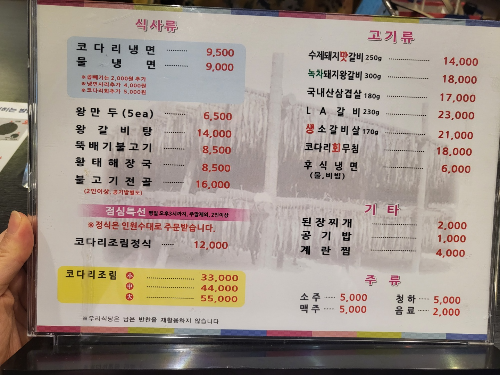 식사류
코다리냉면 9,500
물냉면 9,000
※곱빼기는 2,000원 추가
※냉면사리추가 4,000원
※코다리회추가 5,000원
왕만두(5ea) 6,500
왕갈비탕 14,000
뚝배기불고기 8,500
황태해장국 8,500
불고기전골 16,000
(2인이상, 공기밥별도)
점심특선 평일 오후3시까지, 주말제외, 2인이상
※정식은 인원수대로 주문받습니다.
코다리조림정식 12,000
코다리조림 小 33,000
中 44,000
大 55,000
※우리식당은 남은 반찬을 재활용하지 않습니다
고기류
수제돼지맛갈비 250g 14,000
녹차돼지왕갈비 300g 18,000
국내산삼겹살 180g 17,000
LA갈비 230g 23,000
생소갈비살 170g 21,000
코다리회무침 18,000
후식냉면 6,000
(물,비빔)
기타
된장찌개 2,000
공기밥 1,000
계란찜 4,000
주류
소주 5,000 청하 5,000
맥주 5,000 음료 2,000